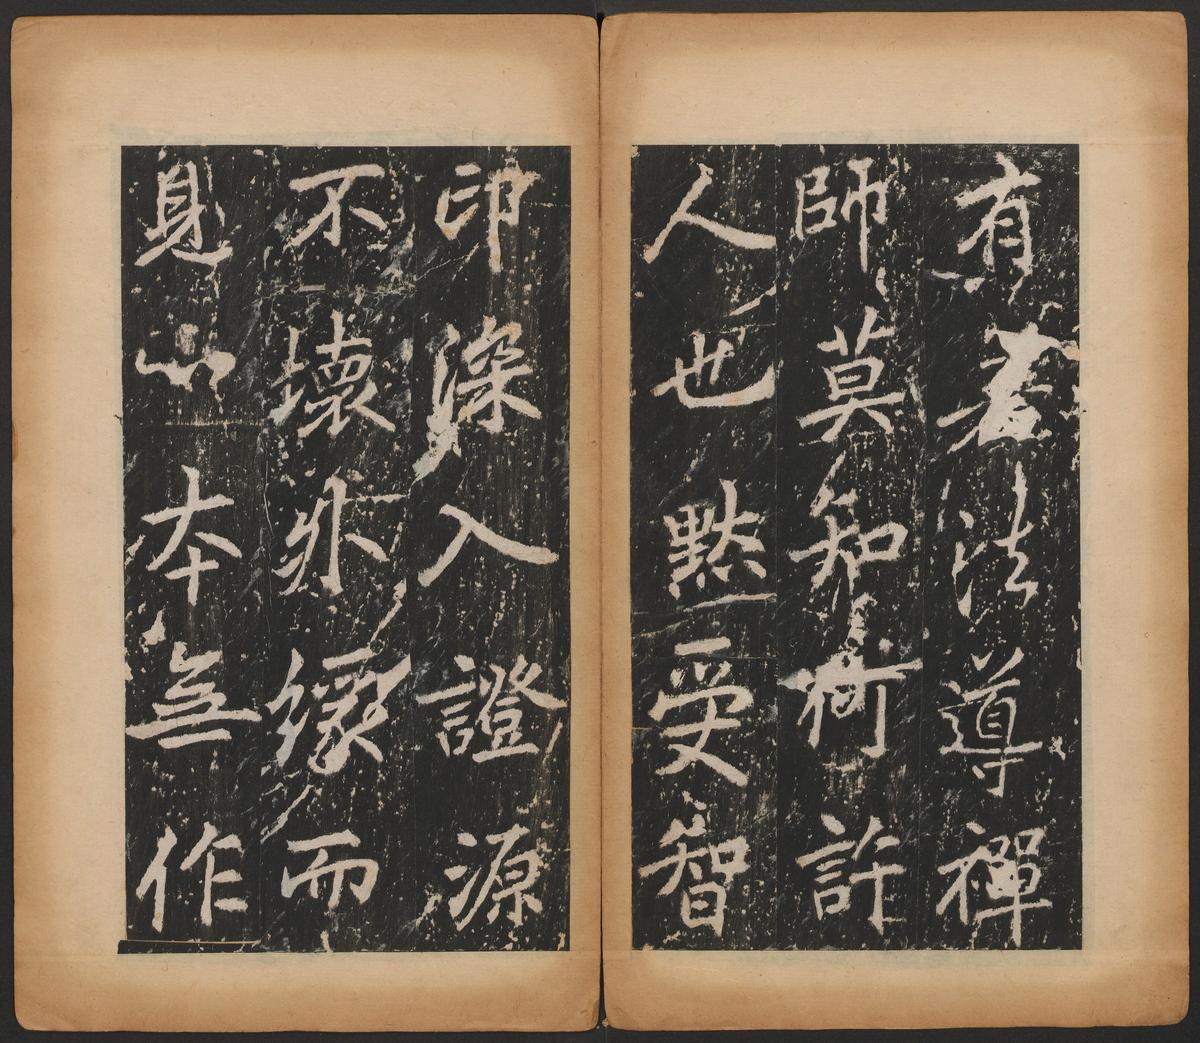 有若法導禪
師莫知何許
人也默受智
印深入證源
不壞外緣而
見心本無作